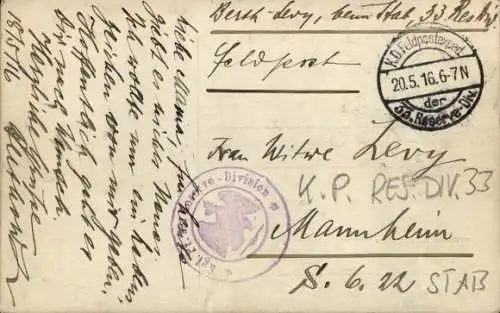 Berth. Levy, beim Stab 33. Res. Div.
Feldpost
K.D. Feldpostexped.
20.5.16.6-7N
der
33. Reserve-Div.
Frau Witwe Levy
Mannheim
S. 6. 22
K.P. RES.DIV.33
STAB
Reserve-Division
18/5/16
Liebe Mama,
gibt es nichts Neues.
Ich wollte nur ein Lebens-
zeichen von mir geben.
Hoffentlich geht es
Dir noch
Herzliche Grüsse
Berthold